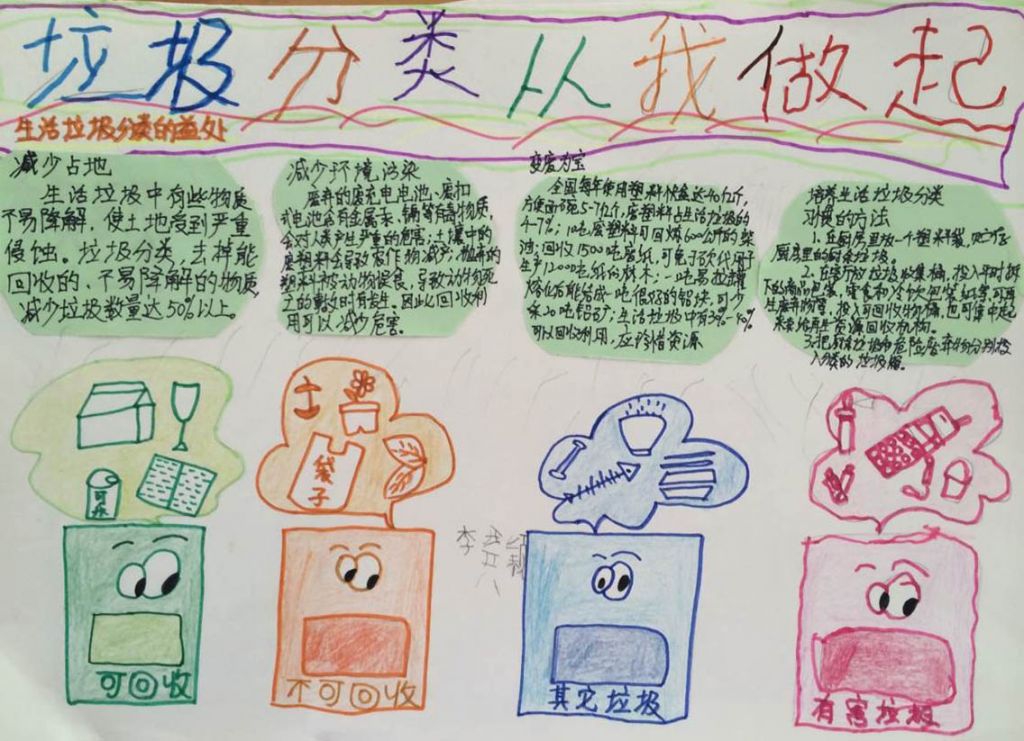 垃圾分类从我做起
生活垃圾分类的益处
减少占地
生活垃圾中有些物质
不易降解，使土地受到严重
侵蚀。垃圾分类，去掉能
回收的、不易降解的物质，
减少垃圾数量达50%以上。
减少环境污染
废弃的废充电电池、废扣
式电池含有金属汞、镉等有毒物质，
会对人类产生严重的危害；土壤中的
废塑料会导致农作物减产；抛弃的
废塑料被动物误食，导致动物死
亡的事故时有发生。因此回收利
用可以减少危害。
变废为宝
全国每年使用塑料快餐盒达40亿个，
方便面碗5-7亿个，废塑料占生活垃圾的
4-7%；1吨废塑料可回炼600公斤的柴
油；回收1500吨废纸，可免于砍伐用于
生产1200吨纸的林木；一吨易拉罐
熔化后能结成一吨很好的铝块，可少
采20吨铝矿；生活垃圾中有30%-40%
可以回收利用，应珍惜资源
培养生活垃圾分类
习惯的方法
1.在厨房里放一个塑料袋，
厨房里的厨余垃圾。
2.在客厅放垃圾收集桶，投入平时拆
下的商品包装、零食和冷饮包装、纸等，可再
生废弃物等，投入可回收物桶，也可集中起
来卖给再生资源回收机构。
3.把有害垃圾和危险废弃物分别投
入分类的垃圾桶。
可乐
袋子
李
可回收
不可回收
其它垃圾
有害垃圾